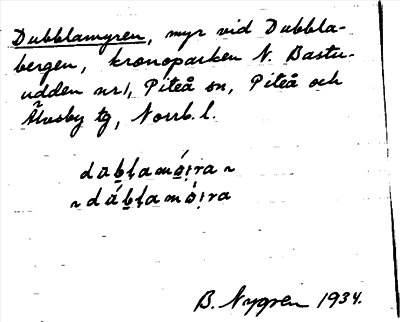 Dubblamyren, myr vid Dubbla-
bergen, kronoparken N. Bastu-
udden nr 1, Piteå sn, Piteå och
Älvsby tg, Norrb. l.
B. Nygren 1934.